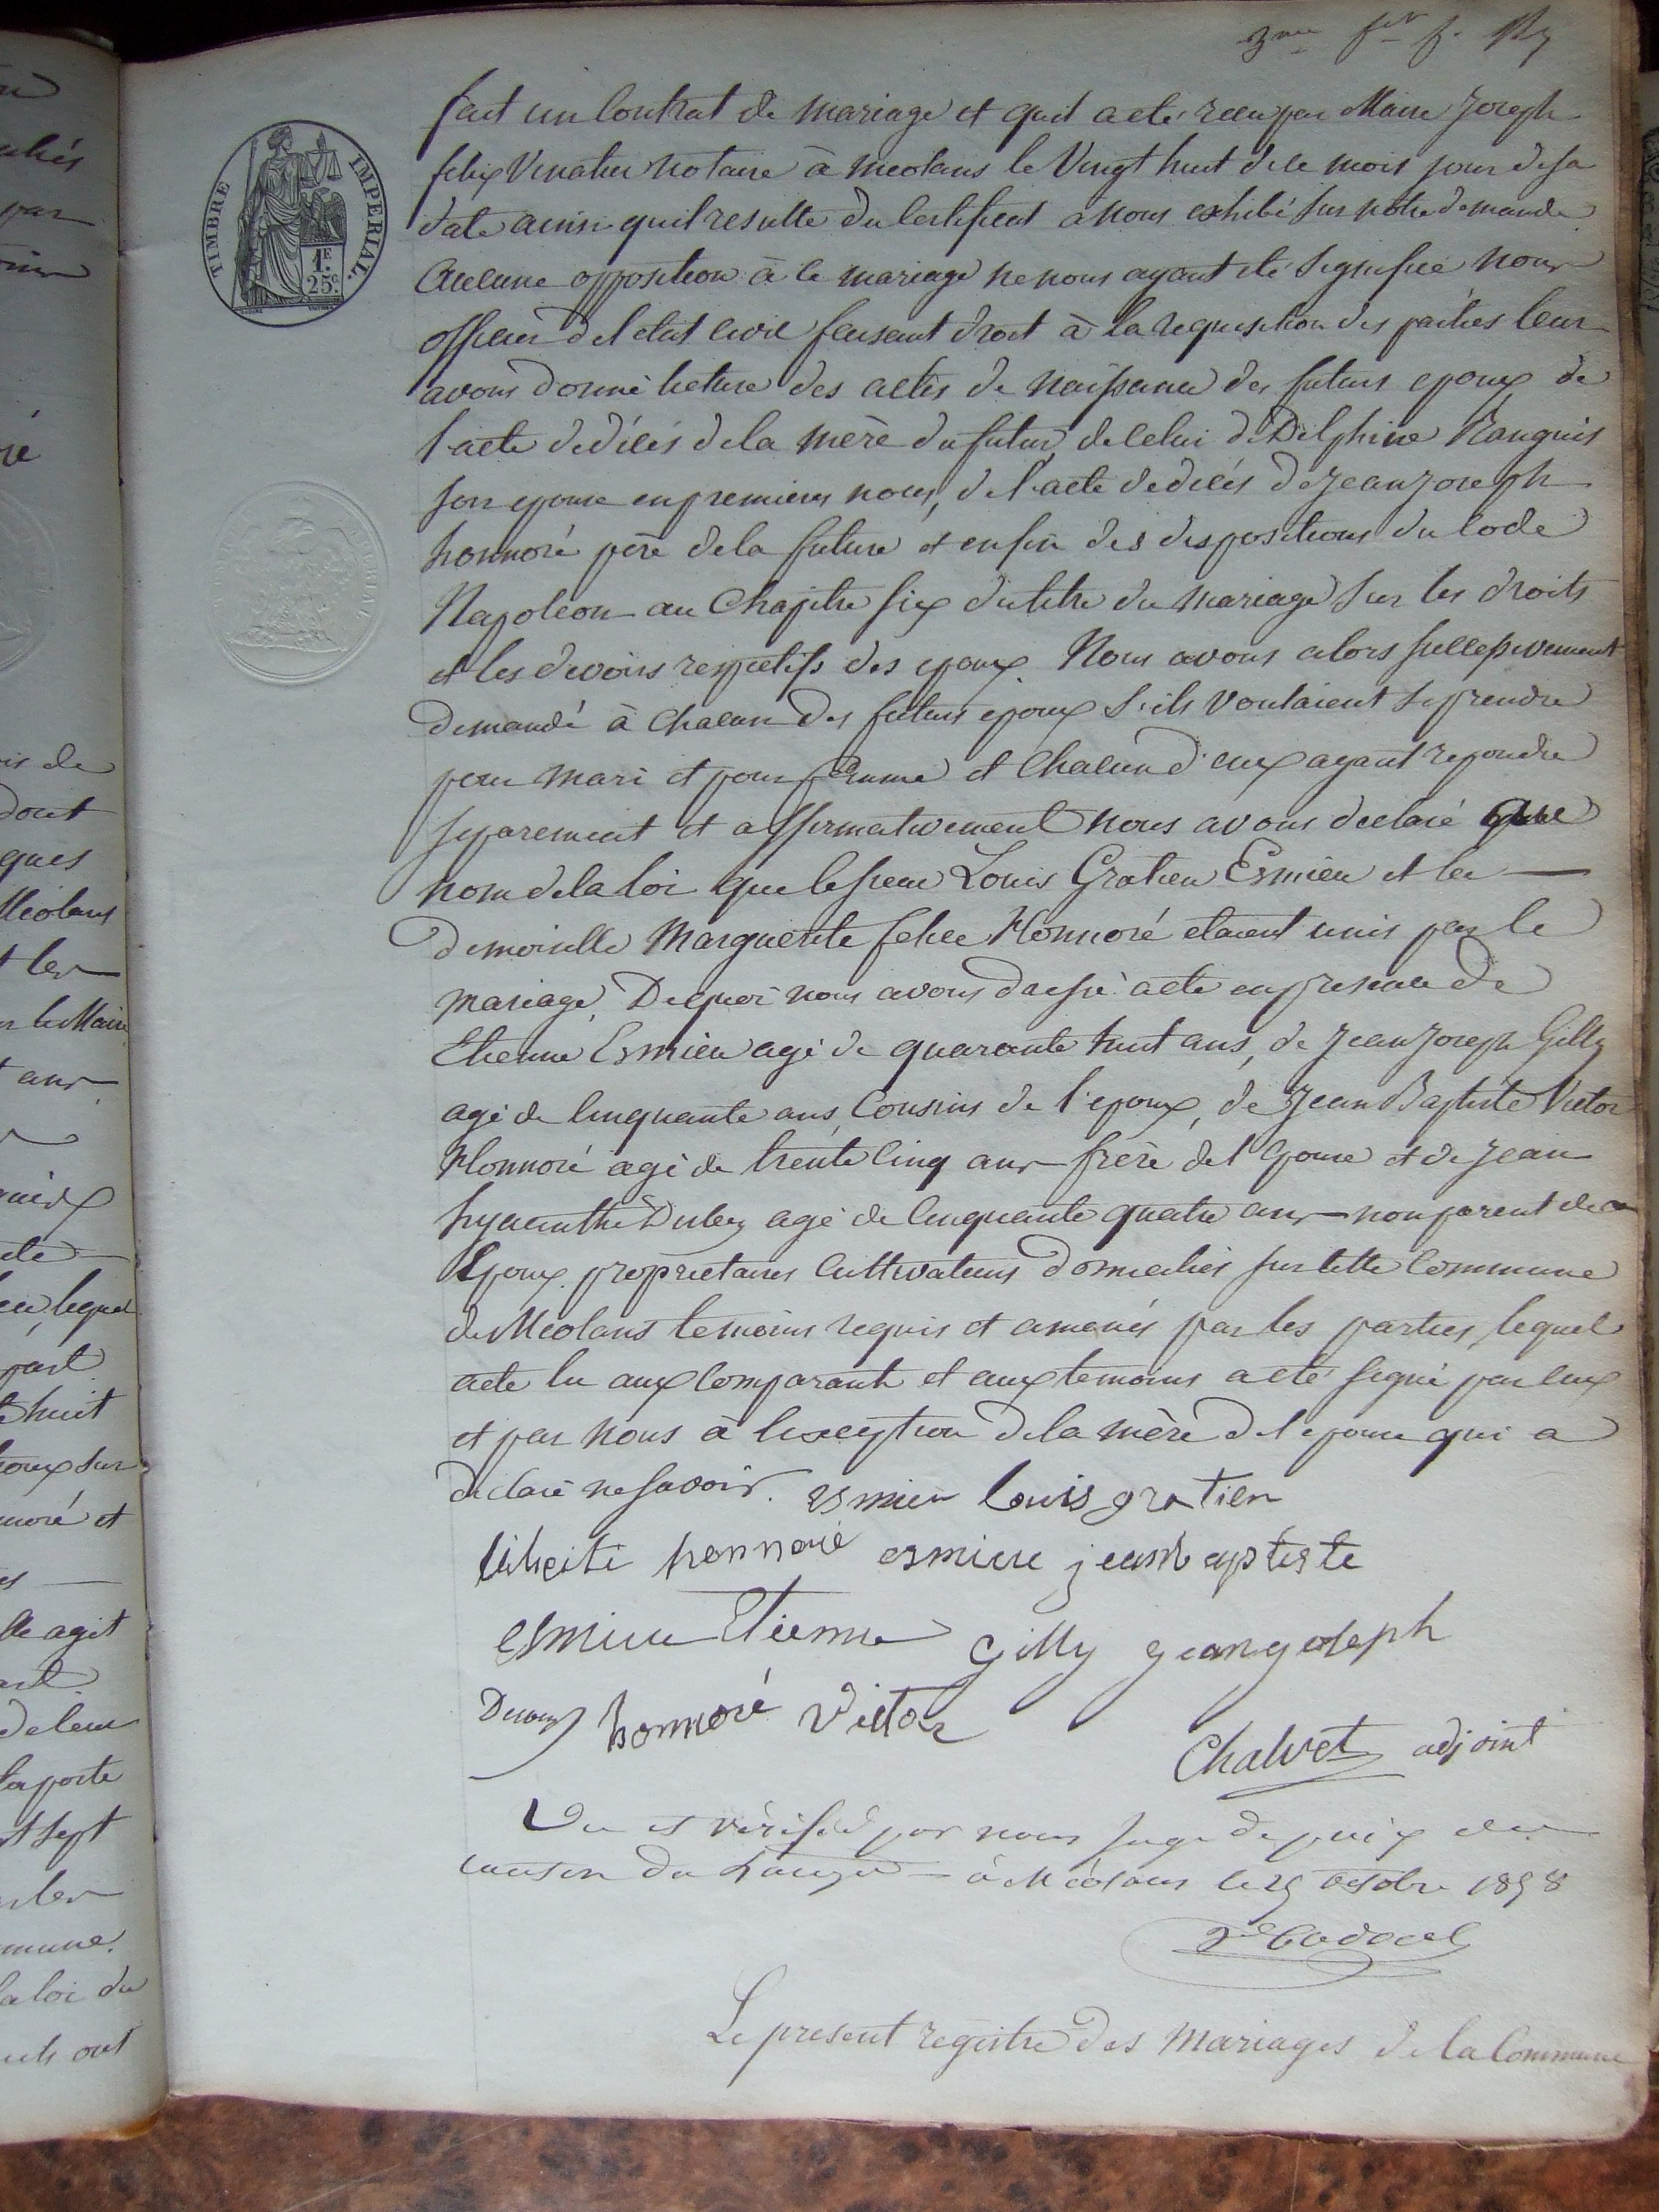 3me f.
TIMBRE IMPERIAL.
1F
25c
fait un Contrat de mariage et quil a eté recu par Maire Joseph
felix notaire à meolans le Vingt huit de ce mois jour de sa
date ainsi quil resulte du Certificat a nous exhibé sur notre demande
Aucune opposition à ce mariage ne nous ayant eté signifiée nous
officier del etat civil faisant droit à la requisition des parties leur
avons donné lecture des actes de naissance des futurs epoux de
l'acte dedécés dela mère du futur, de celui de Delphine
son epouse en premieres noces, de l'acte dedécés de Jean Joseph
honnoré père dela future et enfin des dispositions du Code
Napoléon au Chapitre six du titre du mariage sur les droits
et les devoirs respectifs des epoux. Nous avons alors successivement
demandé à chacun des futurs epoux s'ils voulaient se prendre
pour mari et pour femme et Chacun d'eux ayant repondu
separement et affirmativement nous avons declaré au
nom dela loi que le sieur Louis Gratien Esmieu et la
demoiselle Marguerite felicé Honnoré etaient unis par le
mariage. Dequoi nous avons dressé acte en presence de
Etienne Esmieu agé de quarante huit ans, de Jean Joseph Gilly
agé de Cinquante ans, Cousins de l'epoux, de Jean Baptiste Victor
Honnoré agé de trente Cinq ans frère del'Epouse et de Jean
hyacinthe agé de Cinquante quatre ans non parent des
Epoux. proprietaires Cultivateurs domiciliés sur cette Commune
de Méolans temoins requis et amenés par les parties, lequel
acte lu aux Comparants et aux temoins a eté signé par eux
et par nous à lexception dela mère del epouse qui a
declaré ne savoir. esmieu louis gratien
honnoré esmieu jean baptiste
esmieu Etienne Gilly jean joseph
honnoré Victor
Chalvet adjoint
Vu et vérifié par nous Juge de paix du
canton du Lauzet à Méolans le 29 octobre 1858
Le present registre des mariages de la Commune